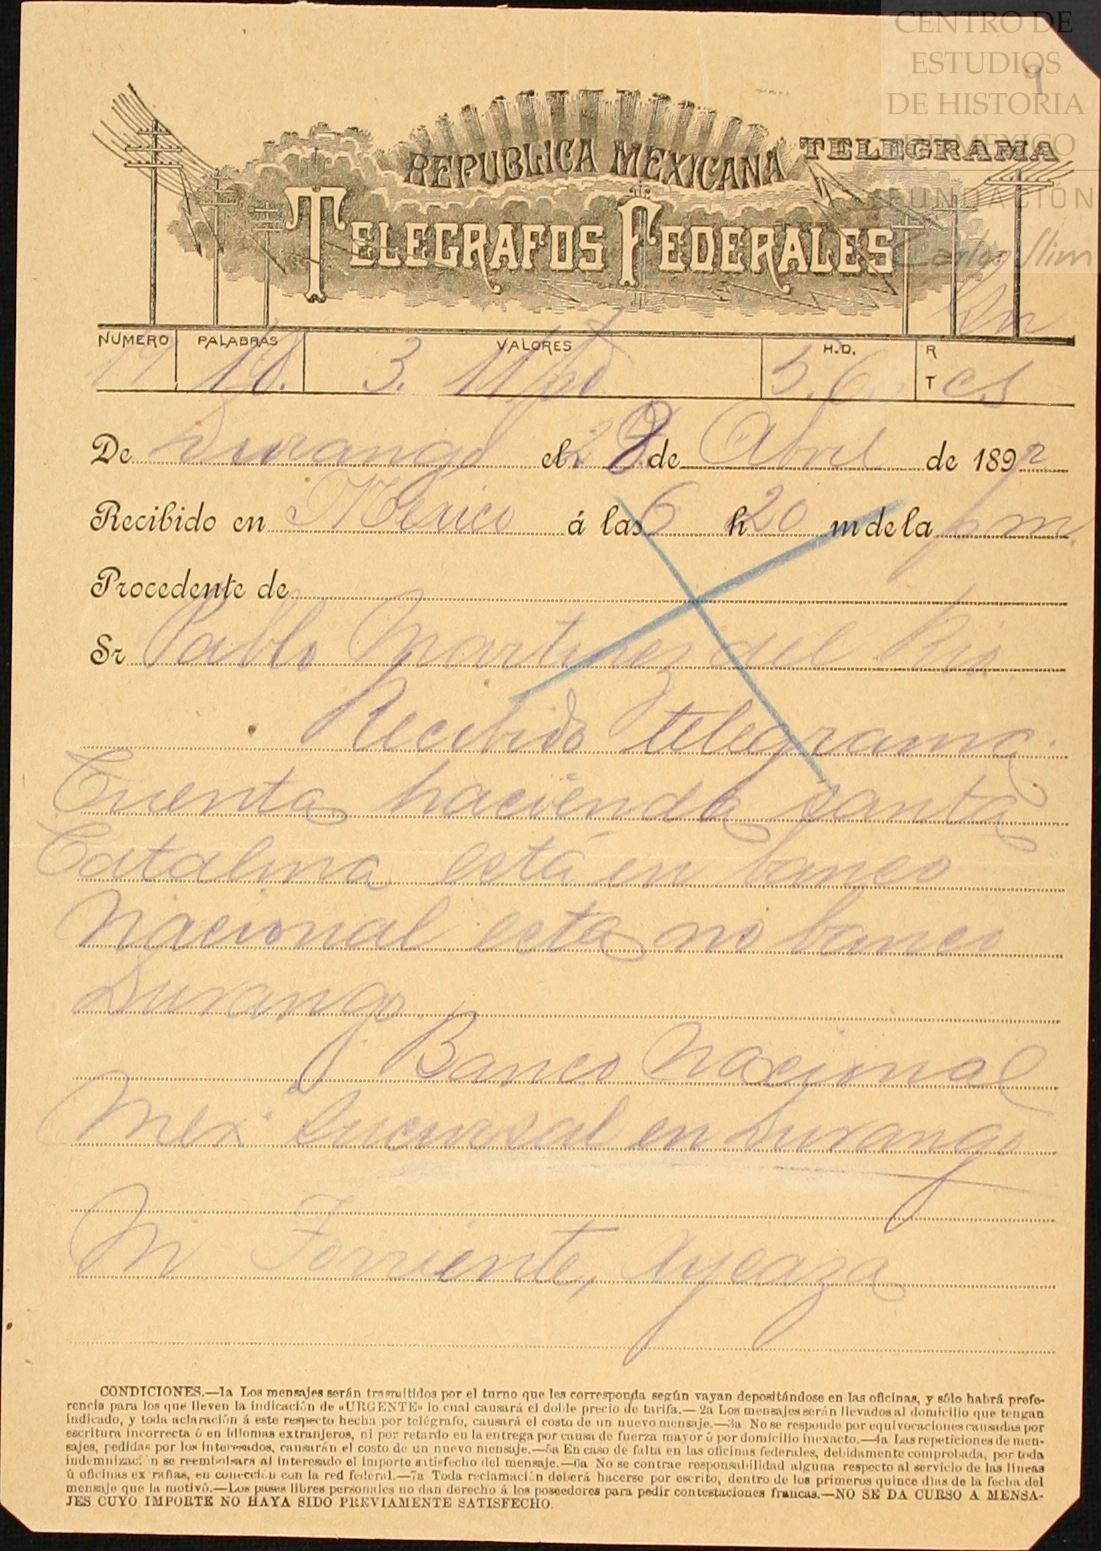 CENTRO DE
ESTUDIOS
DE HISTORIA
DE MEXICO
FUNDACIÓN
Carlos Slim
9
REPUBLICA MEXICANA TELEGRAMA
TELEGRAFOS FEDERALES
NUMERO PALABRAS VALORES H.D. R
T
3. 5.6 cs
De Durango el 28 de Abril de 1892
Recibido en Mexico á las 6 h 20 m de la p m.
Procedente de
Sr Pablo Martinez del Rio
Recibido telegrama.
Cuenta hacienda santa
Catalina está en banco
Nacional esta no banco
Durango.
Banco Nacional
Mex Sucursal en Durango
M Torriente, Aycaza
CONDICIONES.—1a Los mensajes serán trasmitidos por el turno que les corresponda según vayan depositándose en las oficinas, y sólo habrá prefe-
rencia para los que lleven la indicación de «URGENTE» lo cual causará el doble precio de tarifa.—2a Los mensajes serán llevados al domicilio que tengan
indicado, y toda aclaración á este respecto hecha por telégrafo, causará el costo de un nuevo mensaje.—3a No se responde por equivocaciones causadas por
escritura incorrecta ó en idiomas extranjeros, ni por retardo en la entrega por causa de fuerza mayor ó por domicilio inexacto.—4a Las repeticiones de men-
sajes, pedidas por los interesados, causarán el costo de un nuevo mensaje.—5a En caso de falta en las oficinas federales, debidamente comprobada, por toda
indemnización se reembolsará al interesado el importe satisfecho del mensaje.—6a No se contrae responsabilidad alguna respecto al servicio de las líneas
ú oficinas extrañas, en conección con la red federal.—7a Toda reclamación deberá hacerse por escrito, dentro de los primeros quince días de la fecha del
mensaje que la motivó.—Los pases libres personales no dan derecho á los poseedores para pedir contestaciones francas.—NO SE DA CURSO A MENSA-
JES CUYO IMPORTE NO HAYA SIDO PREVIAMENTE SATISFECHO.